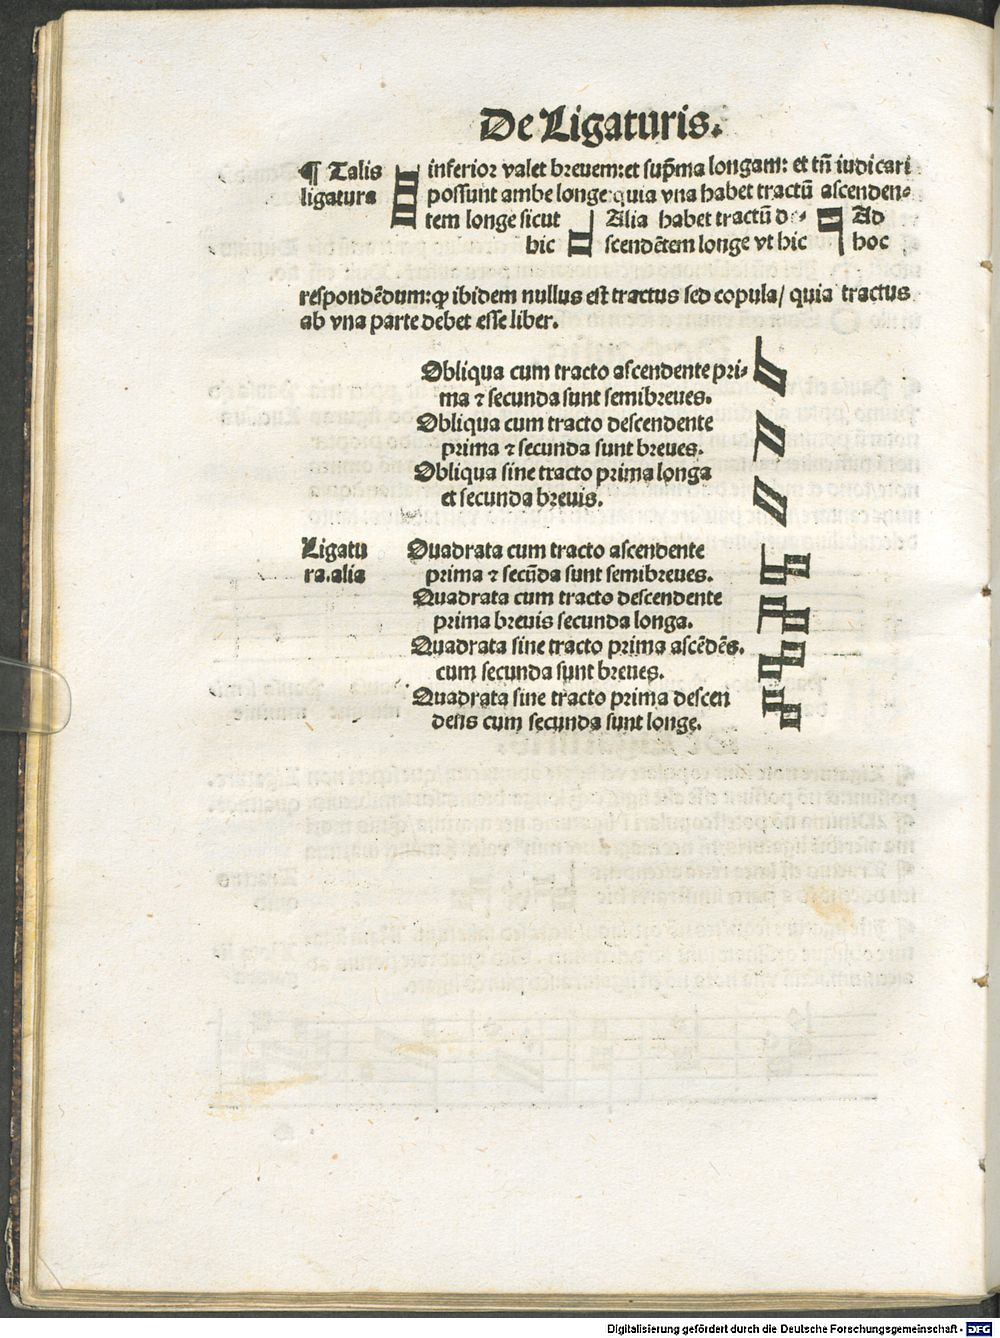 De Ligaturis.
¶ Talis inferior valet breuem: et sup̄ma longam: et tn̄ iudicari
ligatura possunt ambe longe: quia vna habet tractū ascenden-
tem longe sicut Alia habet tractū de- Ad
hic scendētem longe vt hic hoc
respondēdum: ꝙ ibidem nullus est tractus sed copula/ quia tractus
ab vna parte debet esse liber.
Obliqua cum tracto ascendente pri-
ma ⁊ secunda sunt semibreues.
Obliqua cum tracto descendente
prima ⁊ secunda sunt breues.
Obliqua sine tracto prima longa
et secunda breuis.
Ligatu Quadrata cum tracto ascendente
ra.alia prima ⁊ secūda sunt semibreues.
Quadrata cum tracto descendente
prima breuis secunda longa.
Quadrata sine tracto prima ascēdēs.
cum secunda sunt breues.
Quadrata sine tracto prima descen
dens cum secunda sunt longe.
Digitalisierung gefördert durch die Deutsche Forschungsgemeinschaft - DFG